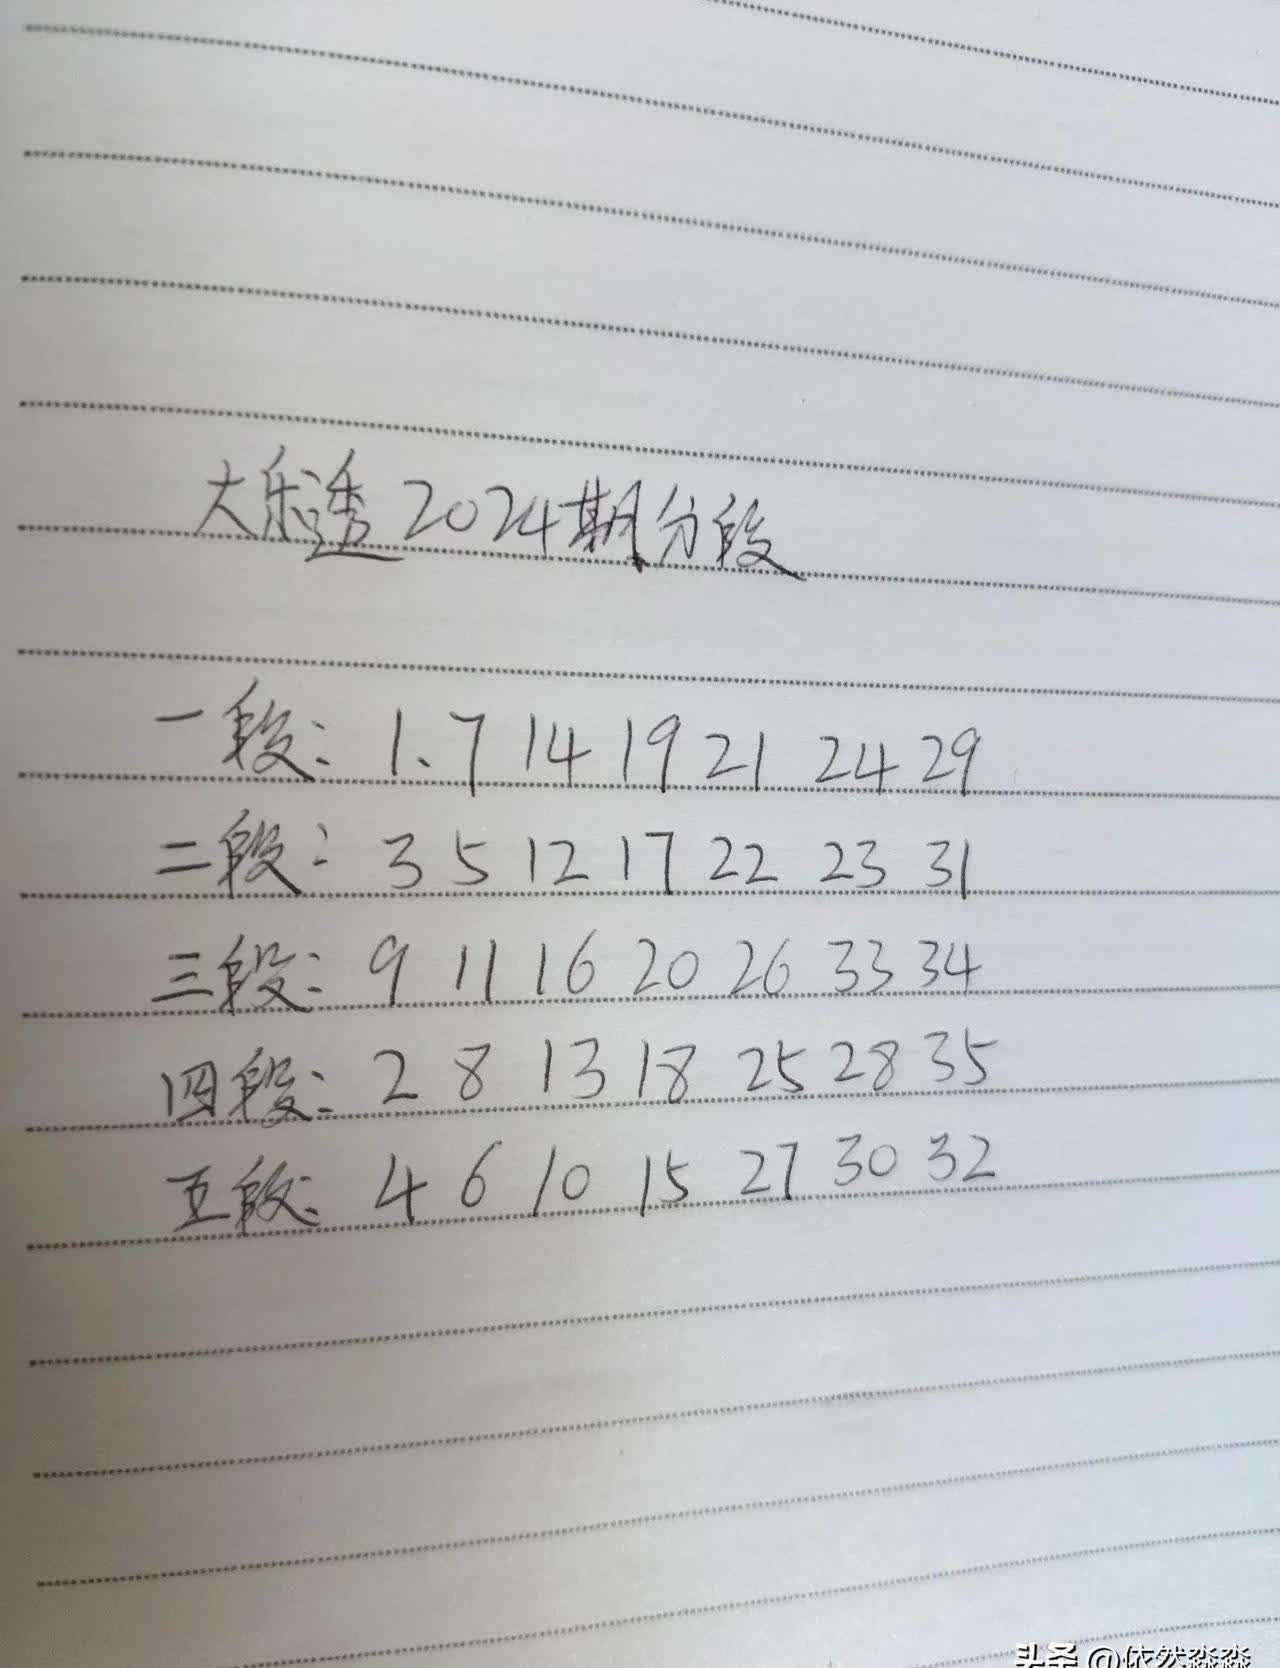 大乐透2024期分段
一段: 1、7 14 19 21 24 29
二段: 3 5 12 17 22 23 31
三段: 9 11 16 20 26 33 34
四段: 2 8 13 18 25 28 35
五段: 4 6 10 15 27 30 32
头条 @依然淼淼